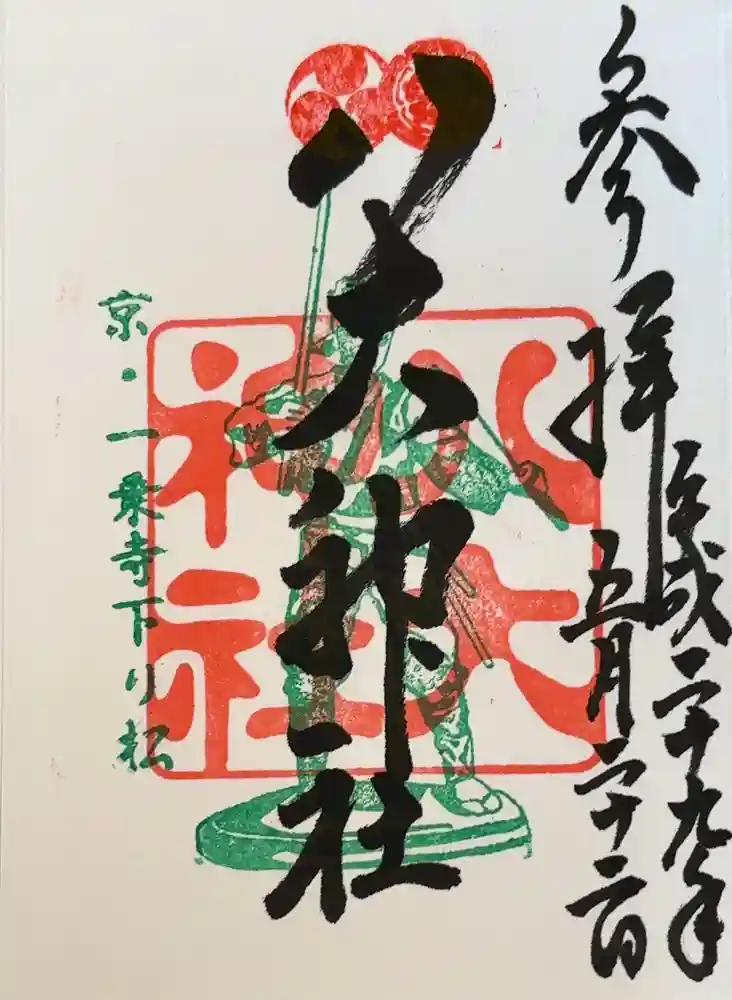 参拝
平成二十九年
五月二十六日
八大神社
八大
神社
京・一乗寺下り松